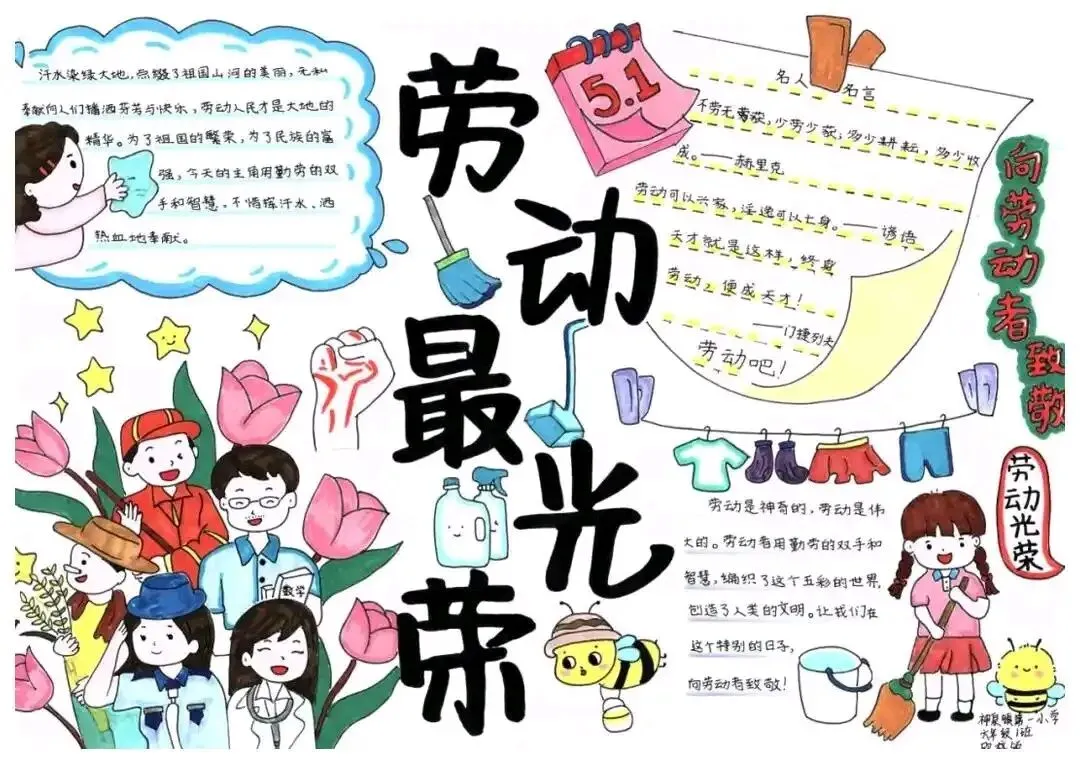 汗水染绿大地，点缀了祖国山河的美丽，无私
奉献向人们播洒芬芳与快乐，劳动人民才是大地的
精华。为了祖国的繁荣，为了民族的富
强，今天的主角用勤劳的双
手和智慧。不惜挥汗水、洒
热血地奉献。
劳动最光荣
5.1
名人名言
不劳无获，少劳少获；多少耕耘，多少收
成。——赫里克
劳动可以兴家，淫逸可以亡身。——谚语
天才就是这样，终身
劳动，便成天才！
——门捷列夫
劳动吧！
向劳动者致敬
劳动光荣
数学
劳动是神奇的，劳动是伟
大的。劳动者用勤劳的双手和
智慧，编织了这个五彩的世界，
创造了人类的文明。让我们在
这个特别的日子，
向劳动者致敬！
神泉镇第一小学
六年级1班